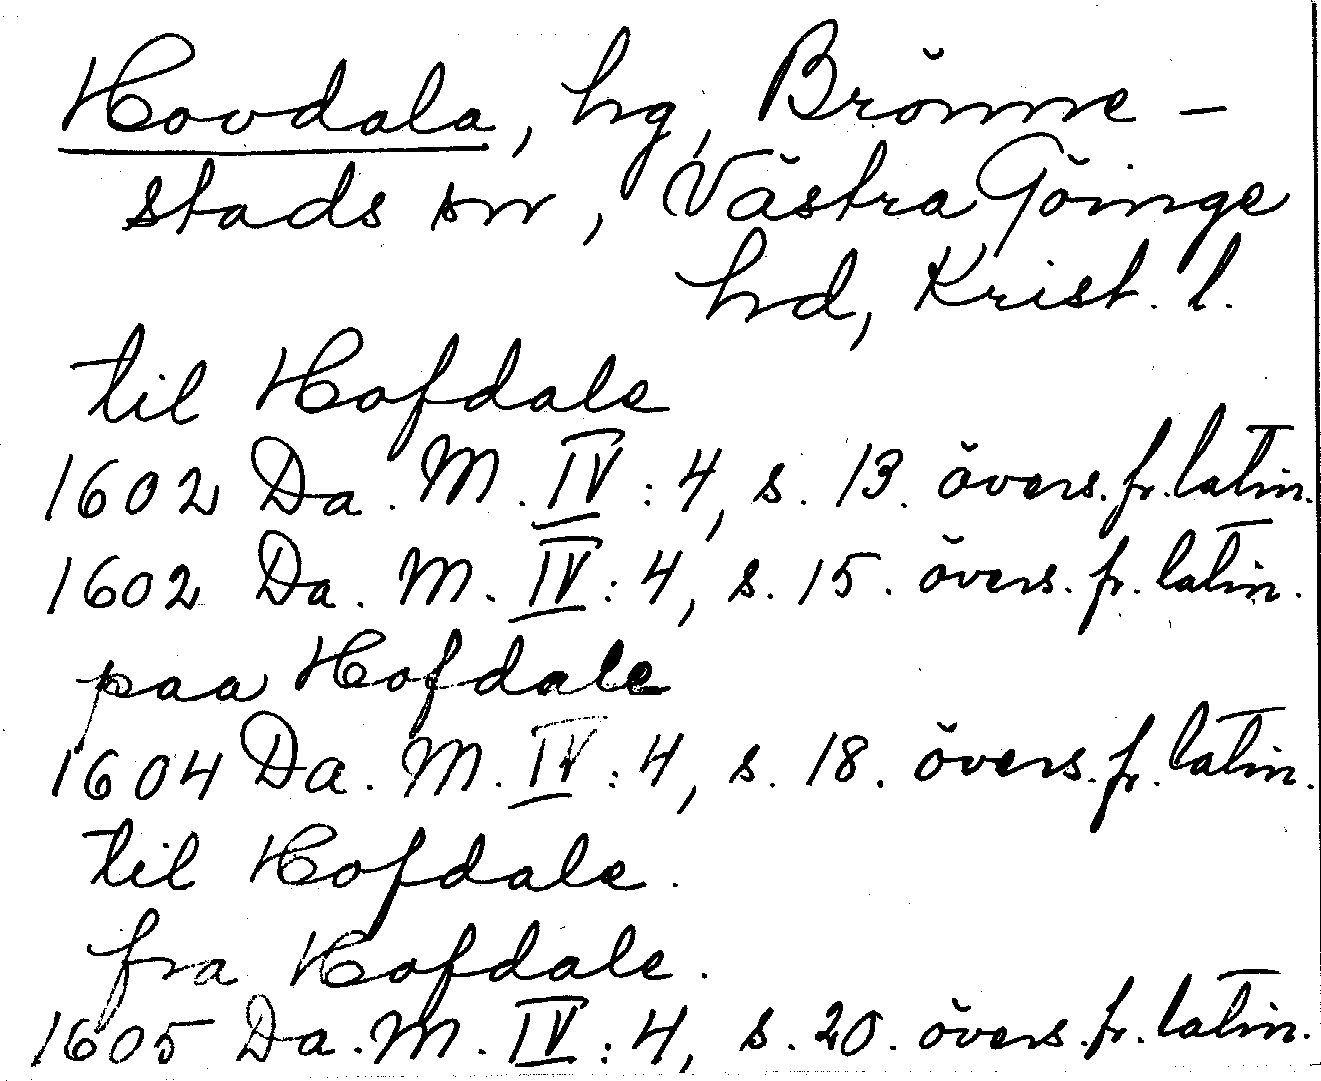 Hovdala, hg, Brönne-
stads sn, Västra Göinge
hd, Krist. l.
til Hofdale
1602 Da. M. IV : 4, s. 13. övers. fr. latin.
1602 Da. M. IV : 4, s. 15. övers. fr. latin.
paa Hofdale
1604 Da. M. IV : 4, s. 18. övers. fr. latin.
til Hofdale.
fra Hofdale.
1605 Da. M. IV : 4, s. 20. övers. fr. latin.